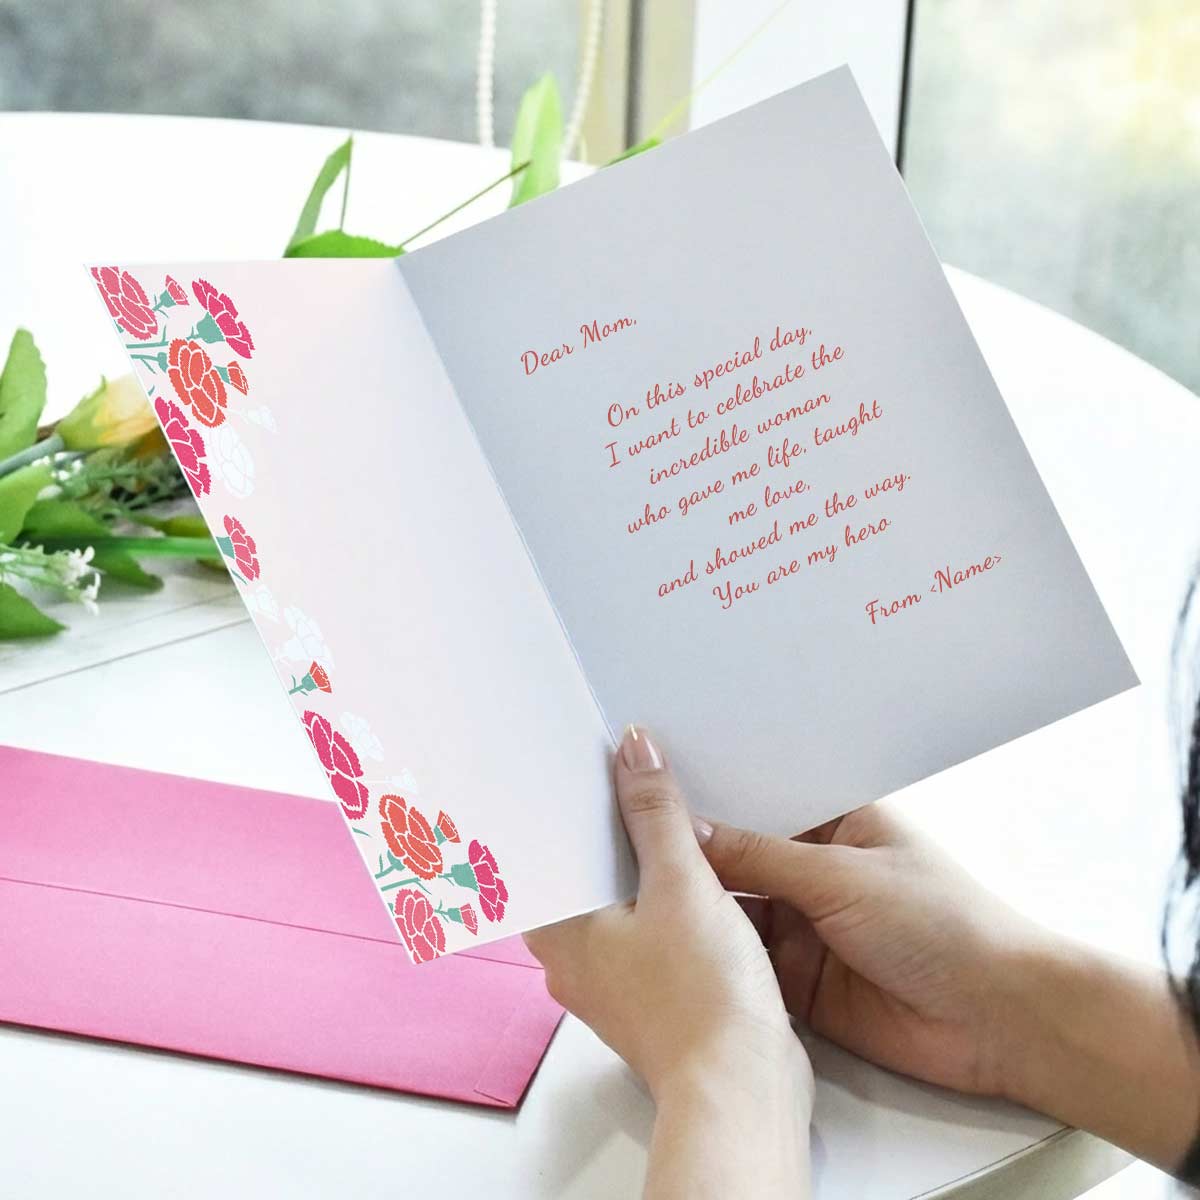 Dear Mom,
On this special day,
I want to celebrate the
incredible woman
who gave me life, taught
me love,
and showed me the way.
You are my hero
From <Name>